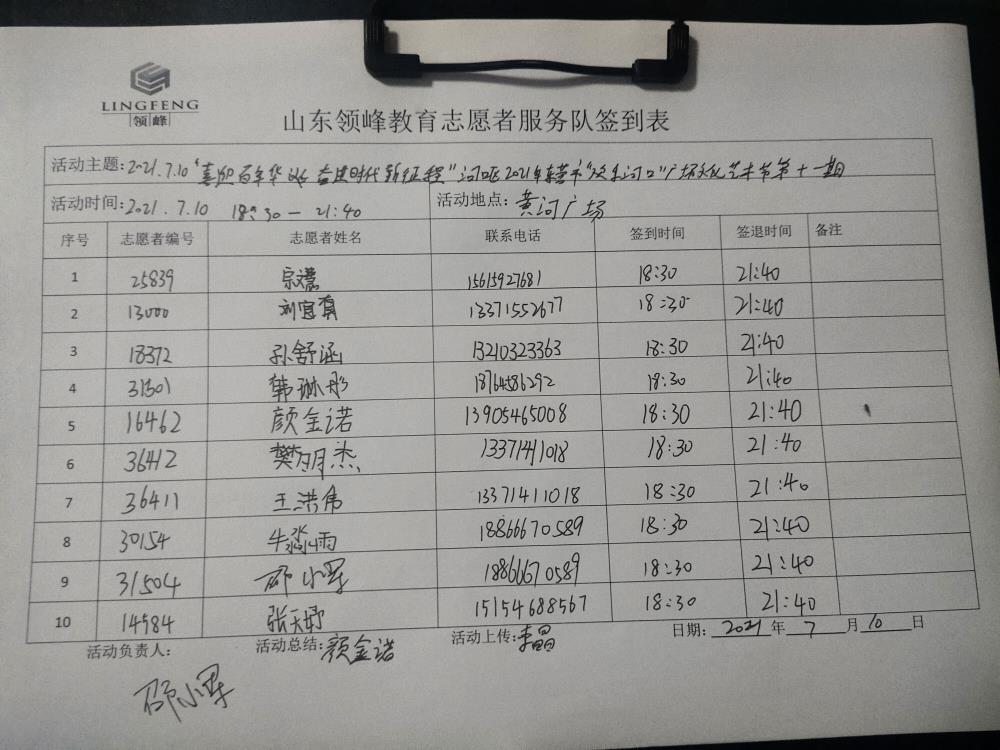 LINGFENG
领峰
山东领峰教育志愿者服务队签到表
活动主题:2021.7.10"喜迎百年华诞 奋进时代新征程"河口区2021年东营市"欢乐河口"广场文化艺术节第十一期
活动时间:2021.7.10 18:30—21:40 活动地点:黄河广场
序号 志愿者编号 志愿者姓名 联系电话 签到时间 签退时间 备注
1 25839 15615927681 18:30 21:40
2 13000 刘宜 13371552677 18:30 21:40
3 18372 孙舒涵 13210323363 18:30 21:40
4 31301 韩琳彤 18764586292 18:30 21:40
5 16462 颜金诺 13905465008 18:30 21:40
6 36412 樊明杰 13371411018 18:30 21:40
7 36411 王洪伟 13371411018 18:30 21:40
8 30154 牛淼雨 18866670589 18:30 21:40
9 31504 邵小军 18866670589 18:30 21:40
10 14584 张天 15154688567 18:30 21:40
活动负责人: 活动总结:颜金诺 活动上传:李昌 日期:2021年7月10日
邵小军